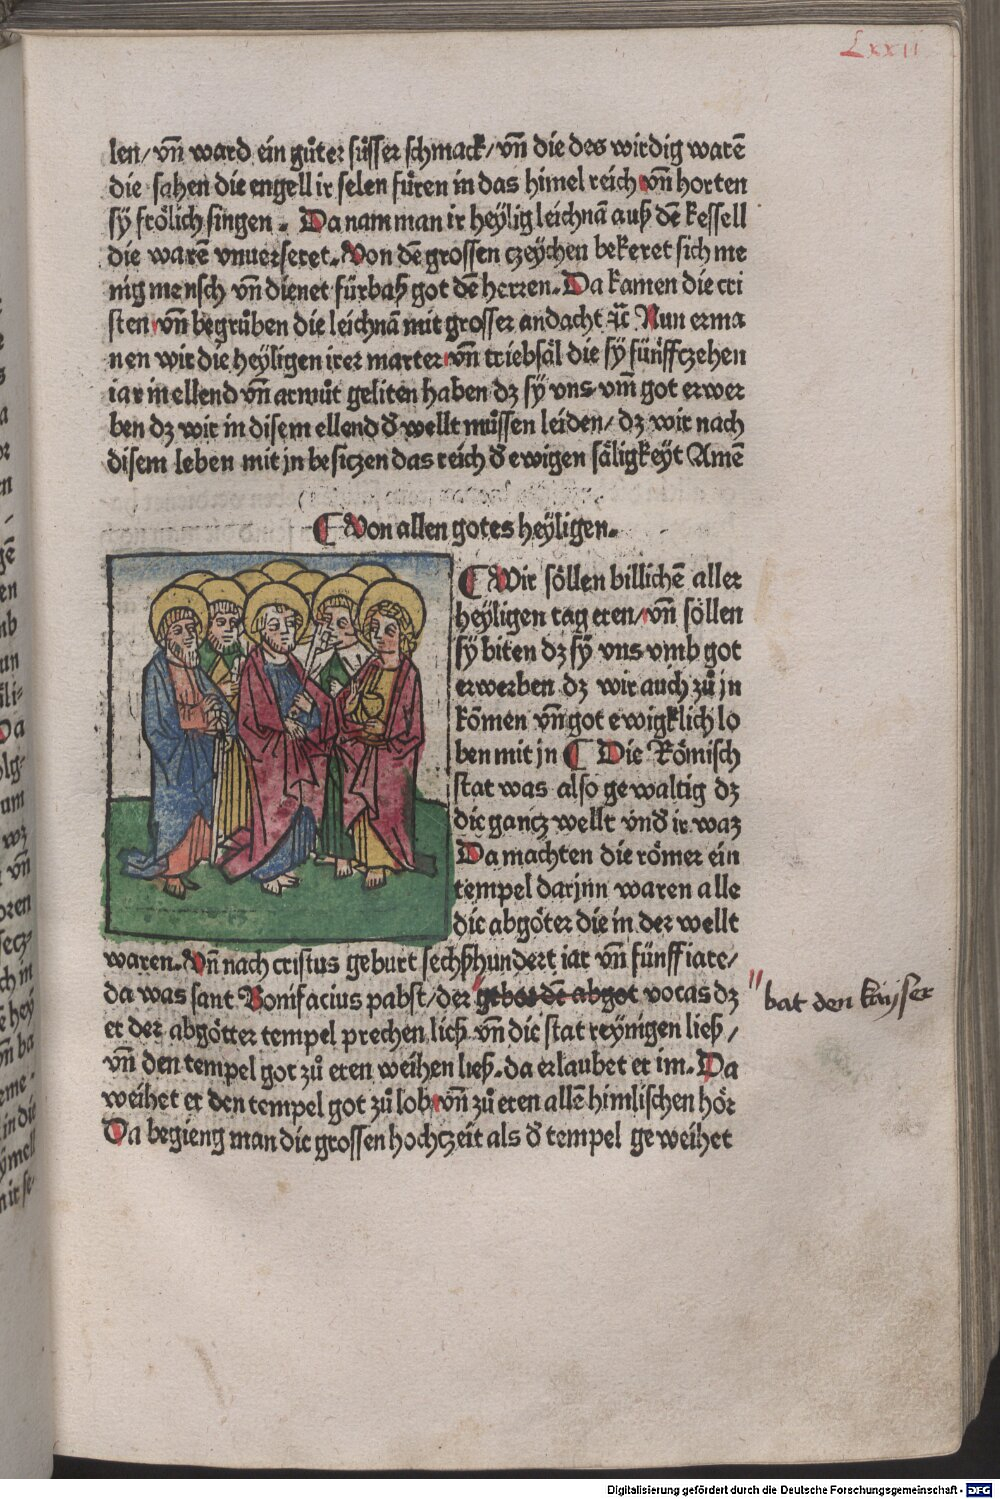 Lxxii
len/ vn̄ ward ein gůter sůsser schmack/ vn̄ die des wirdig warē
die sahen die engell ir selen fůren in das himel reich vn̄ horten
sÿ frölich singen. Da nam man ir heÿlig leichnā auß dē kessell
die warē vnuerseret. Von dē grossen czeÿchen bekeret sich me
nig mensch vn̄ dienet fürbaß got dē herren. Da kamen die cri
sten vn̄ begrůben die leichnā mit grosser andacht ꝛc̄ Nun erma
nen wir die heÿligen irer marter vn̄ triebsäl die sÿ fünffczehen
iar in ellend vn̄ armůt geliten haben dz sÿ vns vm̄ got erwer
ben dz wir in disem ellend d̕ wellt můssen leiden/ dz wir nach
disem leben mit jn besiczen das reich d̕ ewigen säligkeÿt Amē
¶ Von allen gotes heÿligen.
¶ Wir söllen billichē aller
heÿligen tag eren/ vn̄ söllen
sÿ biten dz sÿ vns vmb got
erwerben dz wir auch zů jn
kōmen vn̄ got ewigklich lo
ben mit jn ¶ Die Römisch
stat was also gewaltig dz
die gancz wellt vnd̕ ir waz
Da machten die römer ein
tempel darjnn waren alle
die abgöter die in der wellt
waren. Vn̄ nach cristus geburt sechßhundert iar vn̄ fünff iare/
da was sant Bonifacius pabst/ der gebot dē abgot vocas dz
er der abgötter tempel prechen ließ vn̄ die stat reÿnigen ließ/
vn̄ den tempel got zů eren weihen ließ. da erlaubet er im. Da
weihet er den tempel got zů lob vn̄ zů eren allē himlischen hör
Da begieng man die grossen hochczeit als d̕ tempel geweihet
" bat den kayser
Digitalisierung gefördert durch die Deutsche Forschungsgemeinschaft - DFG